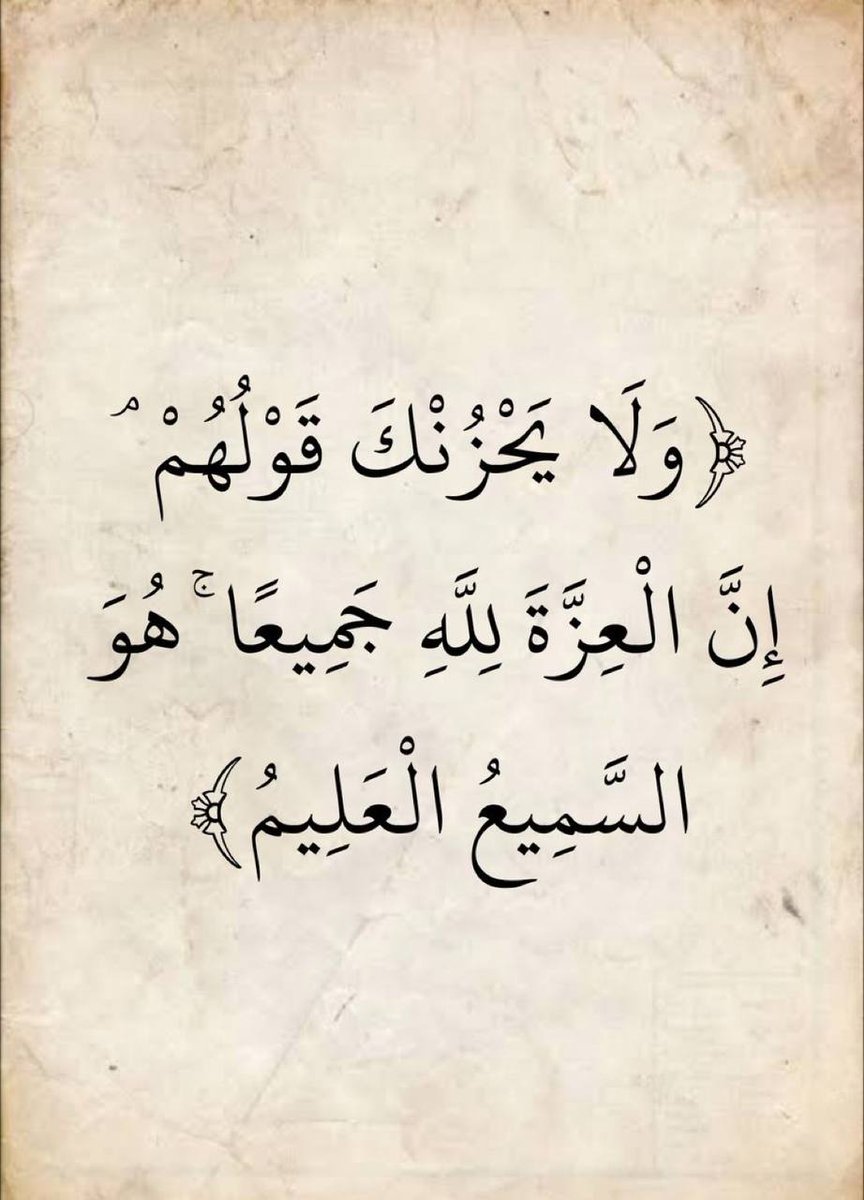 ﴿وَلَا يَحْزُنْكَ قَوْلُهُمْ ۘ
إِنَّ الْعِزَّةَ لِلَّهِ جَمِيعًا ۚ هُوَ
السَّمِيعُ الْعَلِيمُ﴾